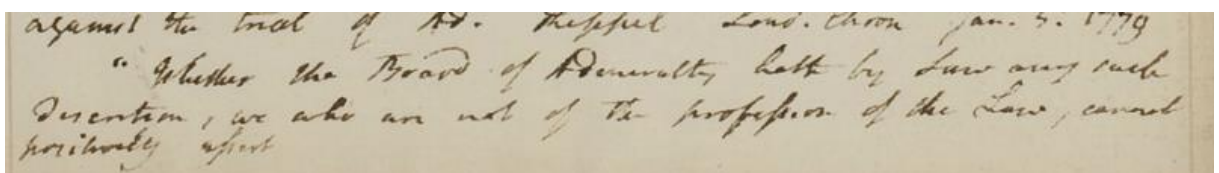 against the trial of Ad. Keppel Lond. Chron Jan. 5. 1779
"Whether the Board of Admiralty hath by Law any such
Discretion, we who are not of the profession of the Law, cannot
positively assert